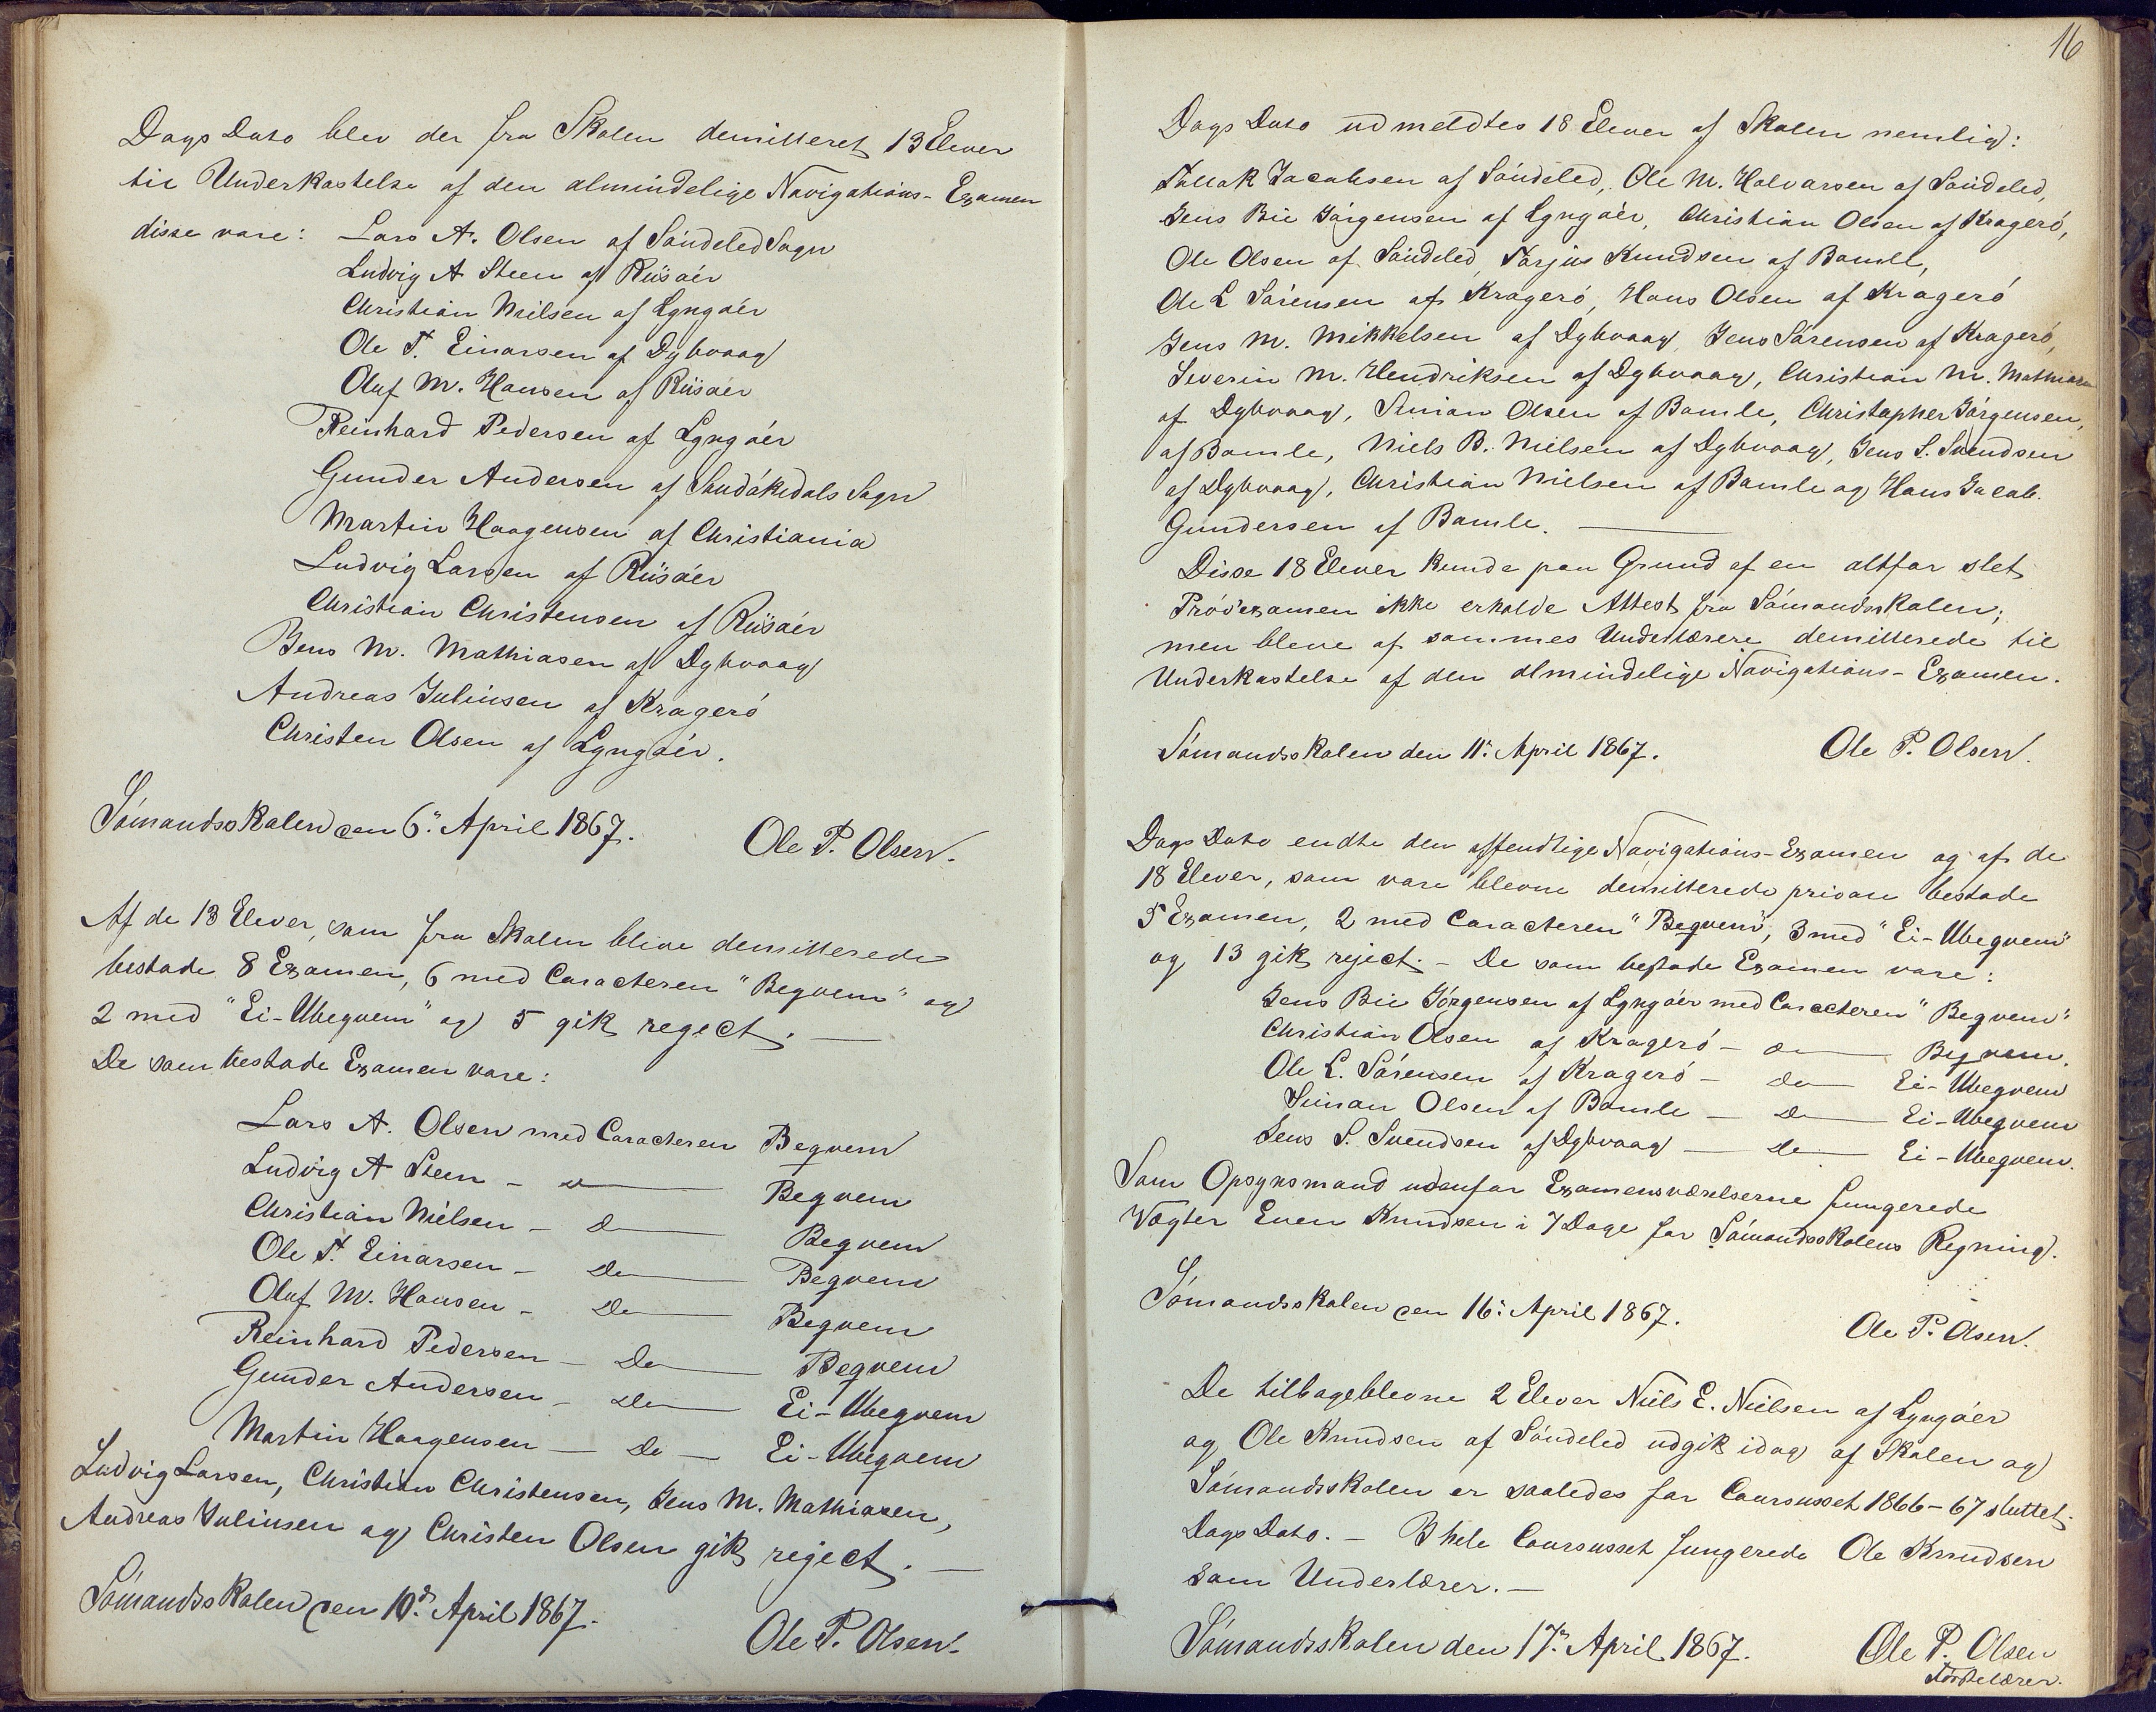 Dags Dato blev der fra Skolen demitteret 13 Elever
til Underkastelse af den almindelige Navigations-Examen
disse vare: Lars A. Olsen af Söndeled Sogn
Ludvig A Steen af Riisöer
Christian Nielsen af Lyngöer
Ole T. Einarsen af Dybvaag
Oluf M. Hansen af Riisöer
Reinhard Pedersen af Lyngöer
Gunder Andersen af Sandökedals Sogn
Martin Haagensen af Christiania
Ludvig Larsen af Riisöer
Christian Christensen af Riisöer
Jens M. Mathiasen af Dybvaag
Andreas Juliusen af Krageró
Christen Olsen af Lyngöer.
Sómandsskolen den 6. April 1867.
Ole P. Olsen.
Af de 13 Elever, som fra Skolen bleve demitterede
bestode 8 Examen, 6 med Caracteren "Beqvem" og
2 med "Ei-Ubeqvem" og 5 gik reject. —
De som bestode Examen vare:
Lars A. Olsen med Caracteren Beqvem
Ludvig A Steen - do — Beqvem
Christian Nielsen - do — Beqvem
Ole T. Einarsen - do — Beqvem
Oluf M. Hansen - do — Beqvem
Reinhard Pedersen - do — Beqvem
Gunder Andersen - do — Ei-Ubeqvem
Martin Haagensen — do — Ei-Ubeqvem
Ludvig Larsen, Christian Christensen, Jens M. Mathiasen,
Andreas Juliusen og Christen Olsen gik reject. —
Sómandsskolen den 10de April 1867.
Ole P. Olsen.
16
Dags Dato udmeldtes 18 Elever af Skolen nemlig:
Tallak Jacobsen af Sóndeled, Ole M. Halvarsen af Sóndeled,
Jens Bie Jórgensen af Lyngóer, Christian Olsen af Krageró,
Ole Olsen af Sóndeled, Tarjus Knudsen af Bamle,
Ole L Sórensen af Krageró, Hans Olsen af Krageró
Jens M. Mikkelsen af Dybvaag, Jens Sórensen af Krageró,
Severin M. Hendriksen af Dybvaag, Christian M. Mathiasen
af Dybvaag, Simon Olsen af Bamle, Christopher Jórgensen,
af Bamle, Niels B. Nielsen af Dybvaag, Jens S. Svendsen
af Dybvaag, Christian Nielsen af Bamle og Hans Jacob
Gundersen af Bamle. —
Disse 18 Elever kunde paa Grund af en altfor slet
Próveexamen ikke erholde Attest fra Sómandsskolen;
men bleve af sammes Underlærere demitterede til
Underkastelse af den almindelige Navigations-Examen.
Sómandsskolen den 11. April 1867.
Ole P. Olsen.
Dags Dato endte den offentlige Navigations-Examen og af de
18 Elever, som vare blevne demitterede privat bestode
5 Examen, 2 med Caracteren "Beqvem", 3 med "Ei-Ubeqvem"
og 13 gik reject. - De som bestode Examen vare:
Jens Bie Jórgensen af Lyngóer med Caracteren "Beqvem"
Christian Olsen af Krageró - do — Beqvem.
Ole L. Sórensen af Krageró - do — Ei-Ubeqvem
Simon Olsen af Bamle — do — Ei-Ubeqvem
Jens S. Svendsen af Dybvaag — do — Ei-Ubeqvem.
Som Opsynsmand udenfor Examensværelserne fungerede
Vægter Even Knudsen i 7 Dage for Sómandsskolens Regning.
Sómandsskolen den 16. April 1867.
Ole P. Olsen.
De tilbageblevne 2 Elever Niels E. Nielsen af Lyngóer
og Ole Knudsen af Sóndeled udgik idag af Skolen og
Sómandsskolen er saaledes for Coursusset 1866-67 sluttet
Dags Dato. - I hele Coursusset fungerede Ole Knudsen
som Underlærer. —
Sómandsskolen den 17. April 1867.
Ole P. Olsen
Fórstelærer.